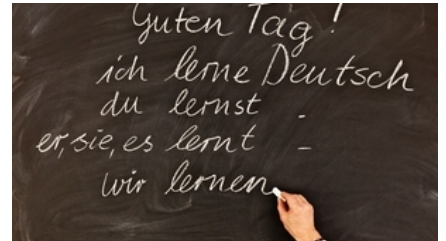 Guten Tag!
ich lerne Deutsch
du lernst -
er, sie, es lernt -
wir lernen